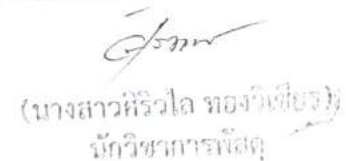 (นางสาวศิริวิไล ทองวิเชียร)
นักวิชาการพัสดุ